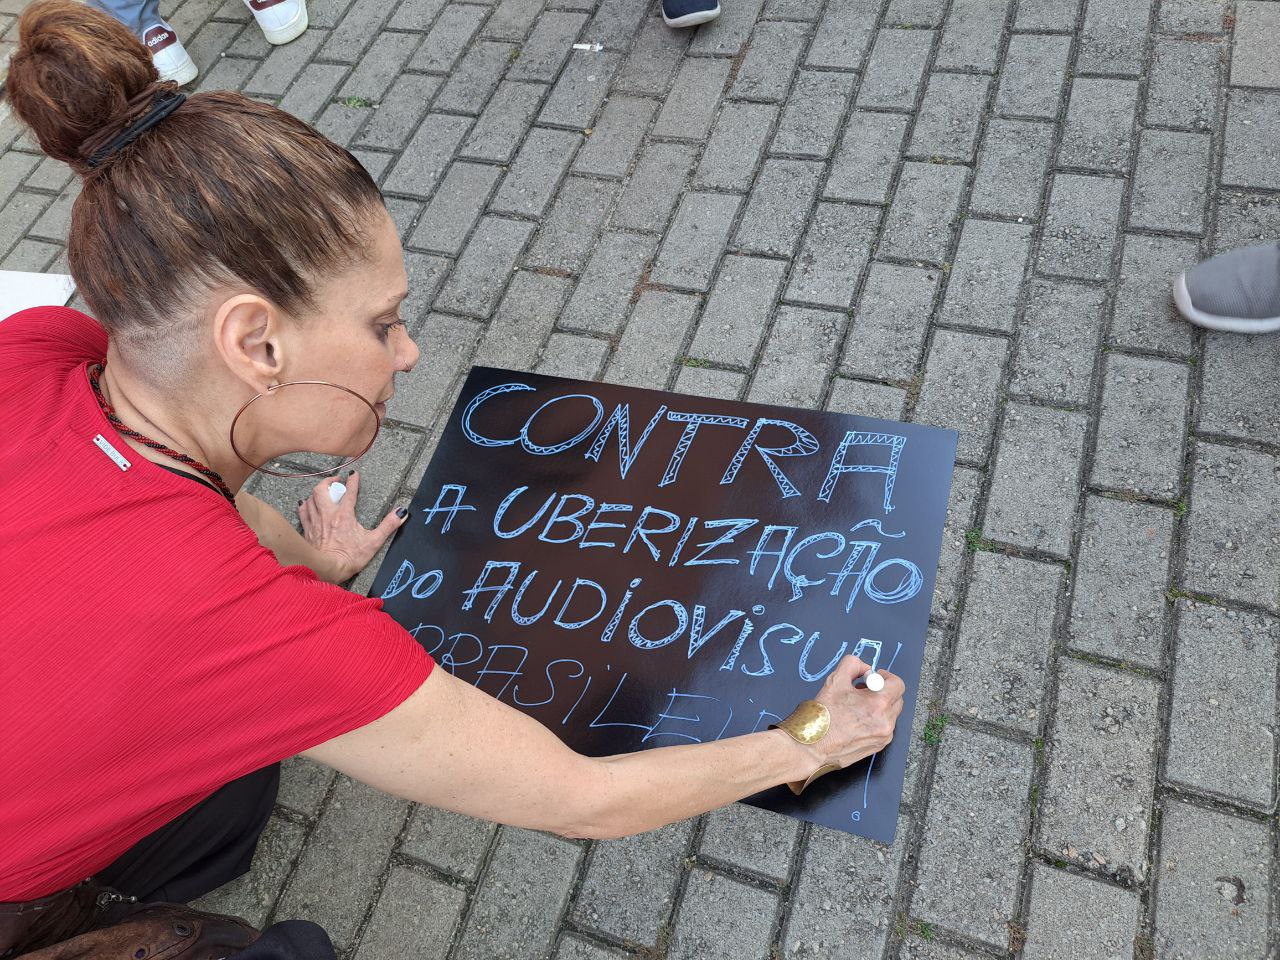 adidas
CONTRA
A UBERIZAÇÃO
DO AUDIOVISUAL
BRASILEIRO!